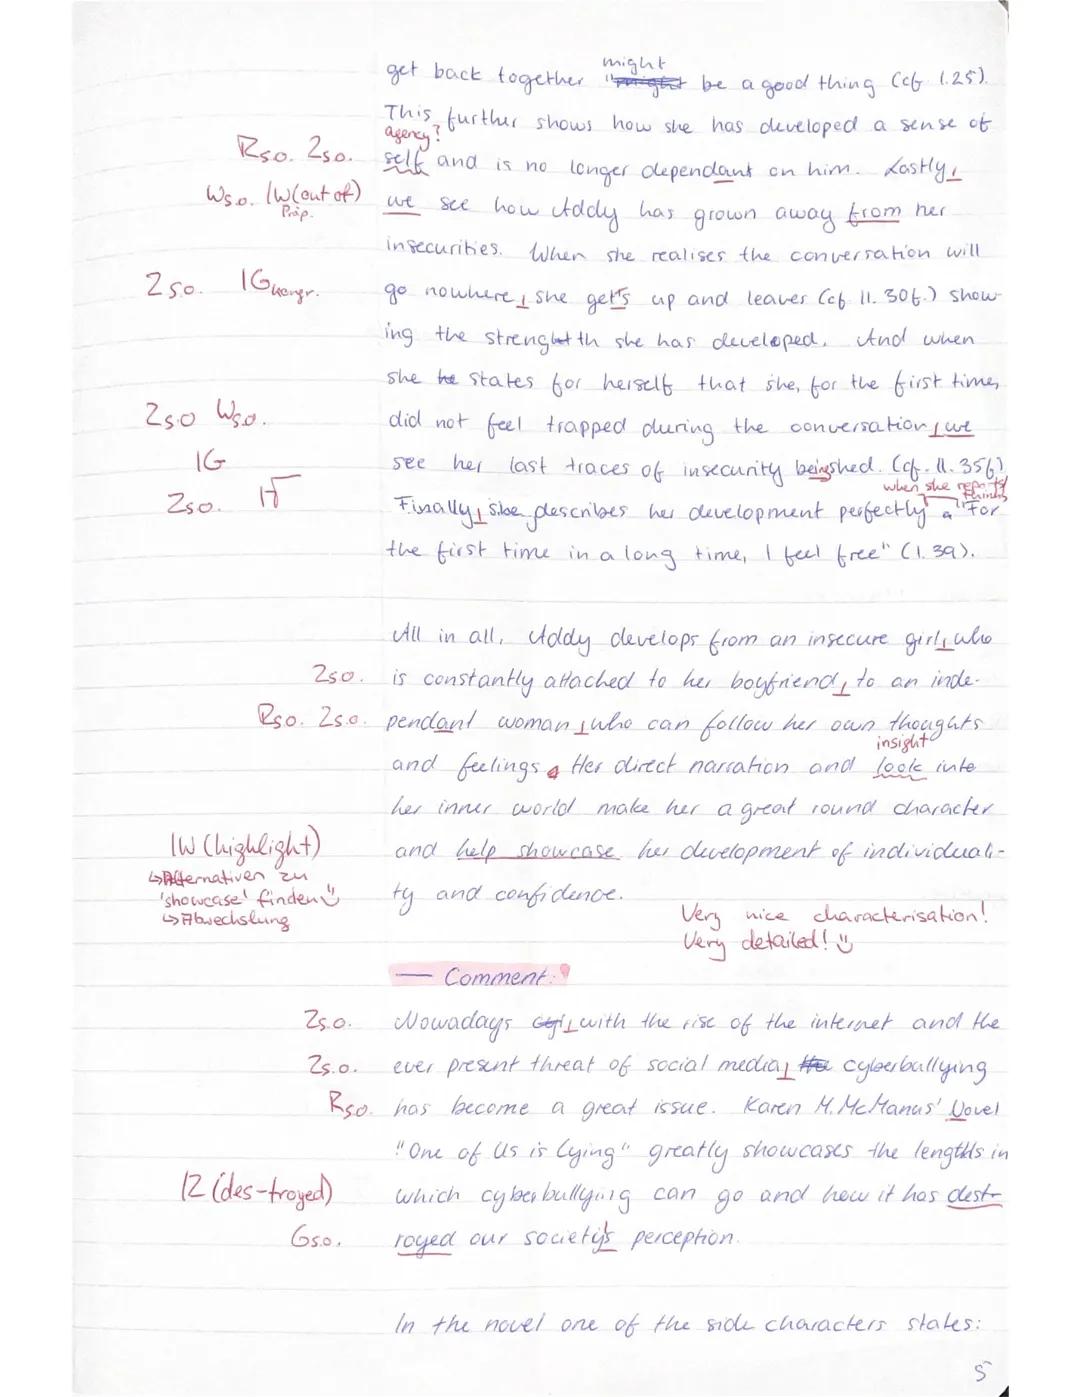 might
get back together "might be a good thing (cf l.25).
This further shows how she has developed a sense of
agency?
Rs.o. Zs.o. self and is no longer dependant on him. Lastly,
Ws.o. 1W(out of) we see how Addy has grown away from her
Präp.
insecurities. When she realises the conversation will
Zs.o. 1G kongr. go nowhere, she get's up and leaves (cf ll. 30f.) show-
ing the strenght th she has developed. And when
she he states for herself that she, for the first time,
Zs.o Ws.o. did not feel trapped during the conversation, we
1G see her last traces of insecurity being shed. (cf. ll. 35f)
when she reports
Zs.o. 1√ Finally, she describes her development perfectly "For
the first time in a long time, I feel free" (l. 39).
All in all, Addy develops from an insecure girl, who
Zs.o. is constantly attached to her boyfriend, to an inde-
Rs.o. Zs.o. pendant woman, who can follow her own thoughts
insight
and feelings. Her direct narration and look into
her inner world make her a great round character
1W (highlight) and help showcase her development of individuali-
↳Alternativen zu
'showcase' finden ty and confidence.
↳Abwechslung
Very nice characterisation!
Very detailed!
— Comment:
Zs.o. Nowadays, with the rise of the internet and the
Zs.o. ever present threat of social media, the cyberbullying
Rs.o. has become a great issue. Karen M. McManus' Novel
"One of Us is Lying" greatly showcases the lengths in
1Z (des-troyed) which cyberbullying can go and how it has dest-
Gs.o. royed our society's perception.
In the novel one of the side characters states:
5